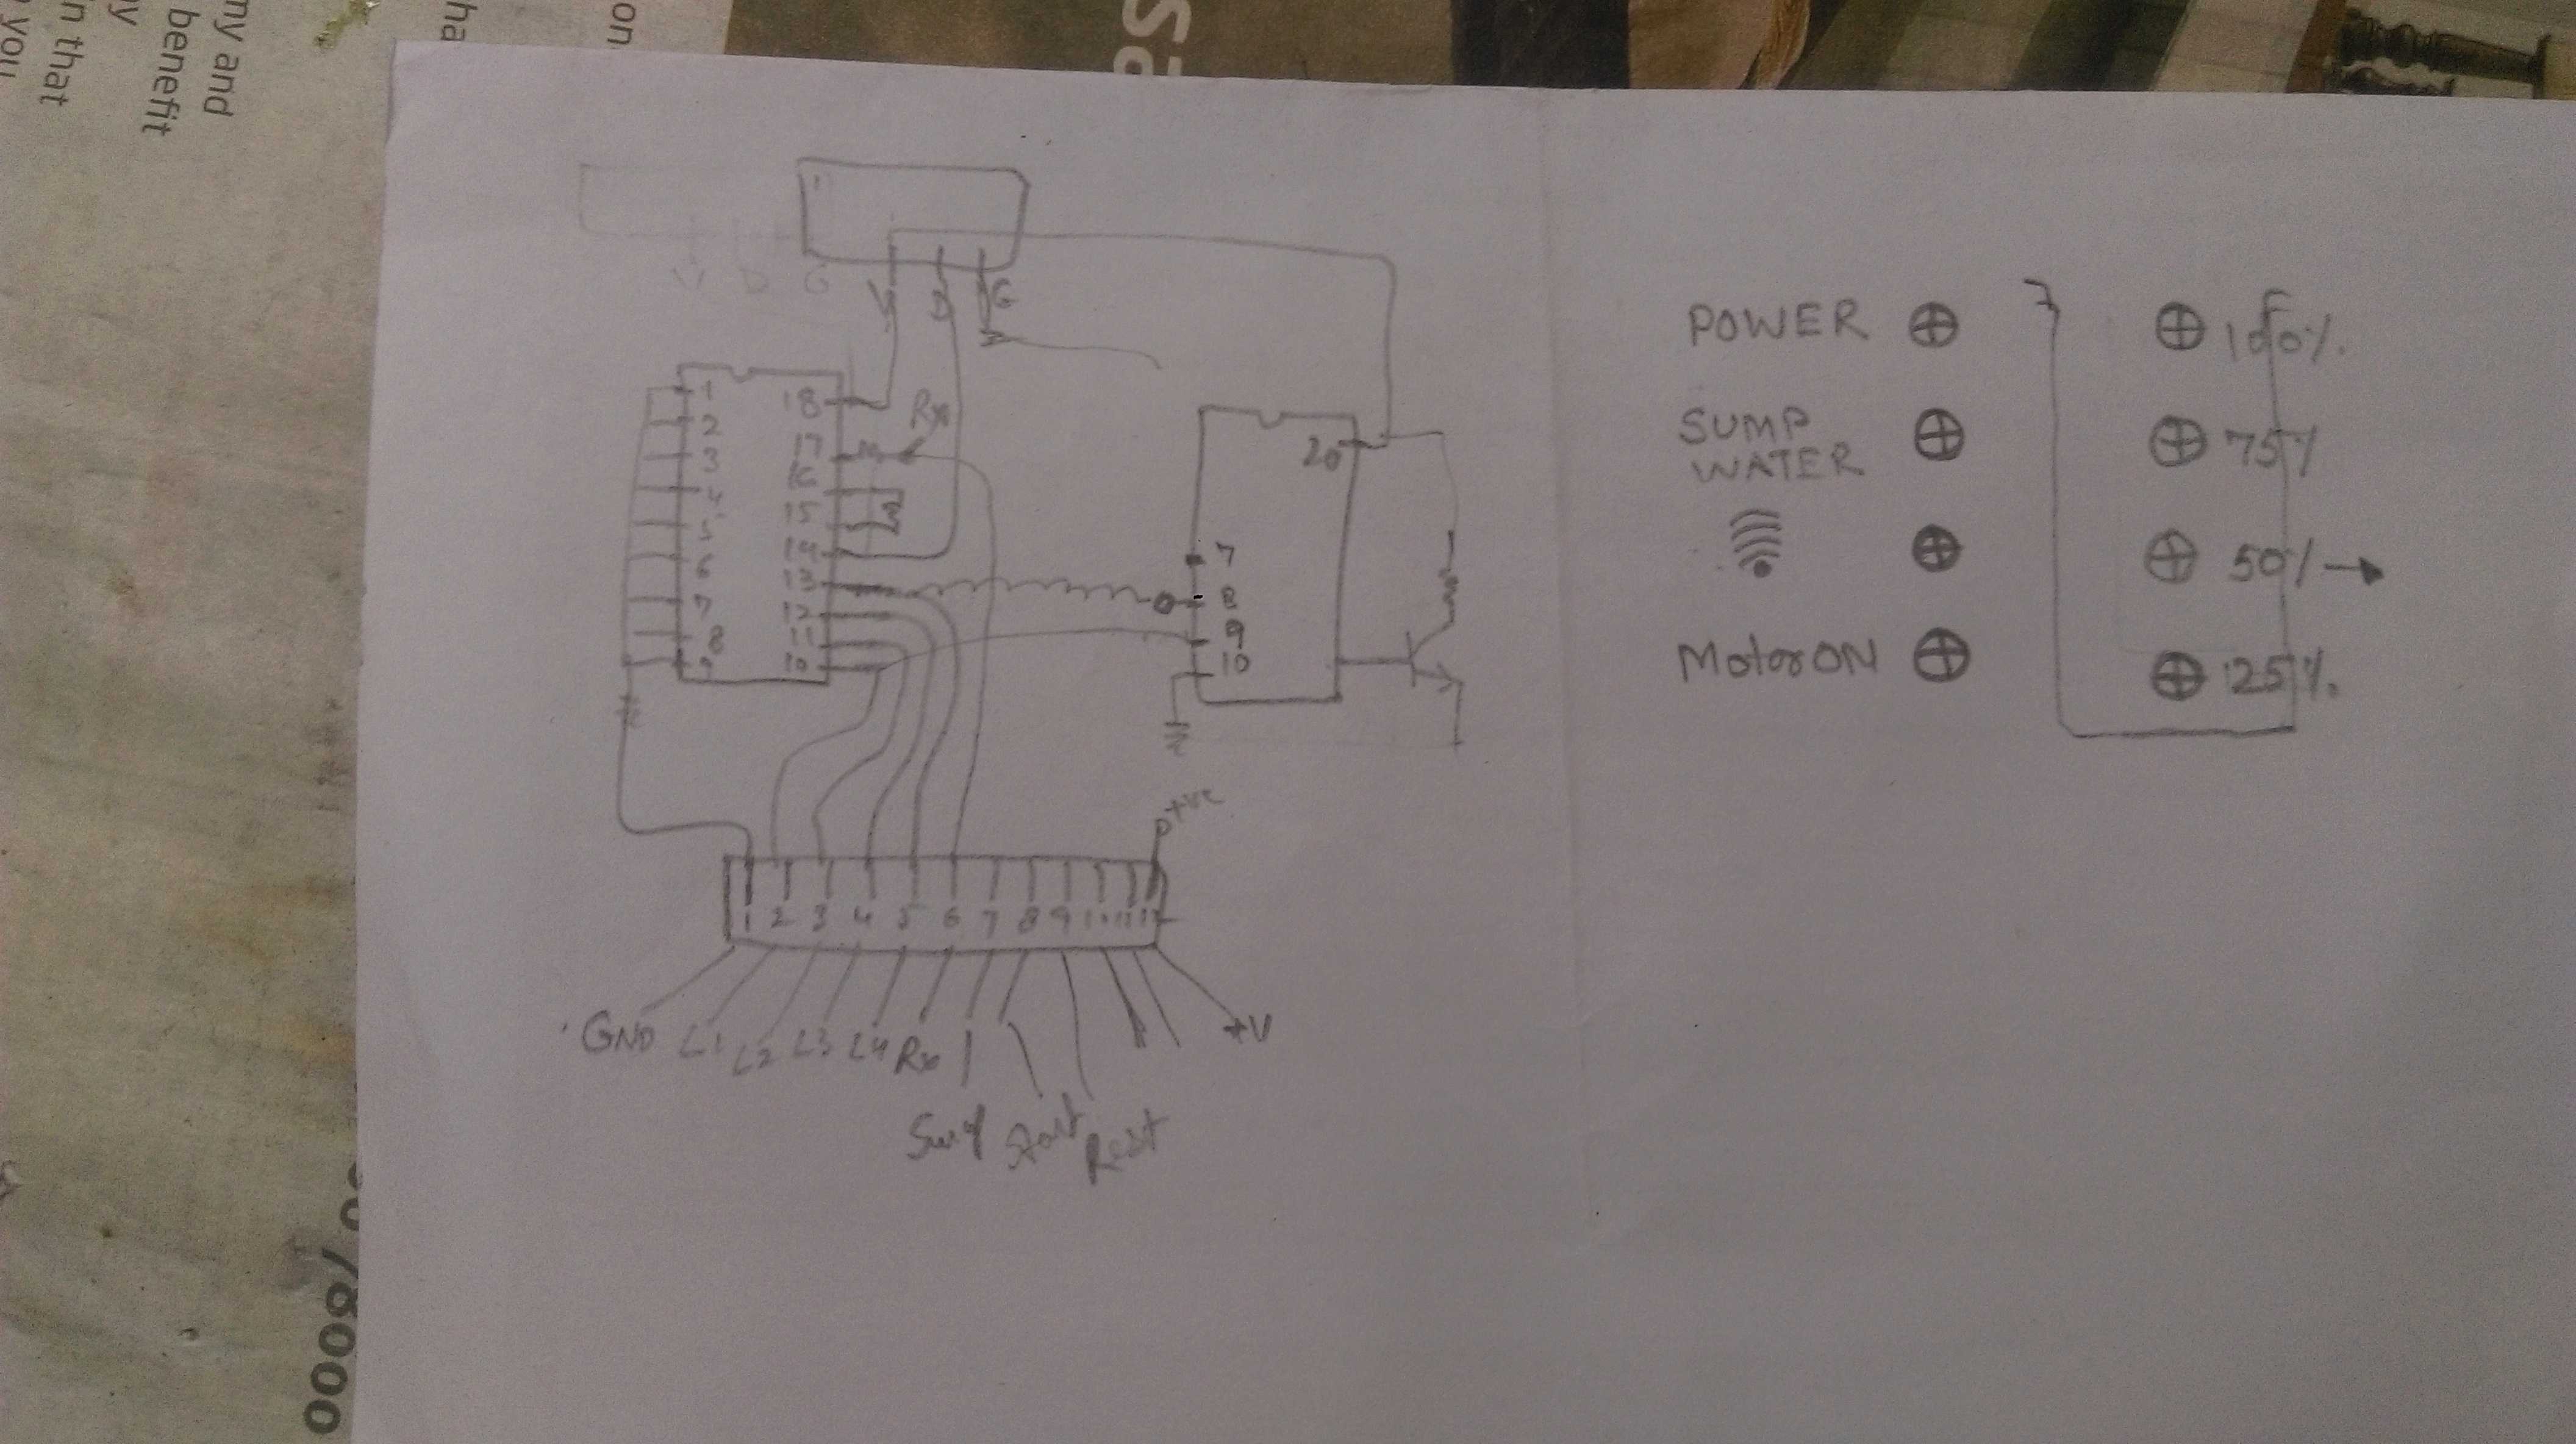 my and
benefit
ny
in that
you
ha
on
Sa
78000
1
V D G
V D G
1
2
3
4
5
6
7
8
9
18
17
16
15
14
13
12
11
10
Rx
20
7
8
9
10
+ve
1 2 3 4 5 6 7 8 9 10 11 12
GND L1 L2 L3 L4 Rx +V
Start Rest
POWER
SUMP
WATER
Motor ON
100%.
75%
50%
25%.